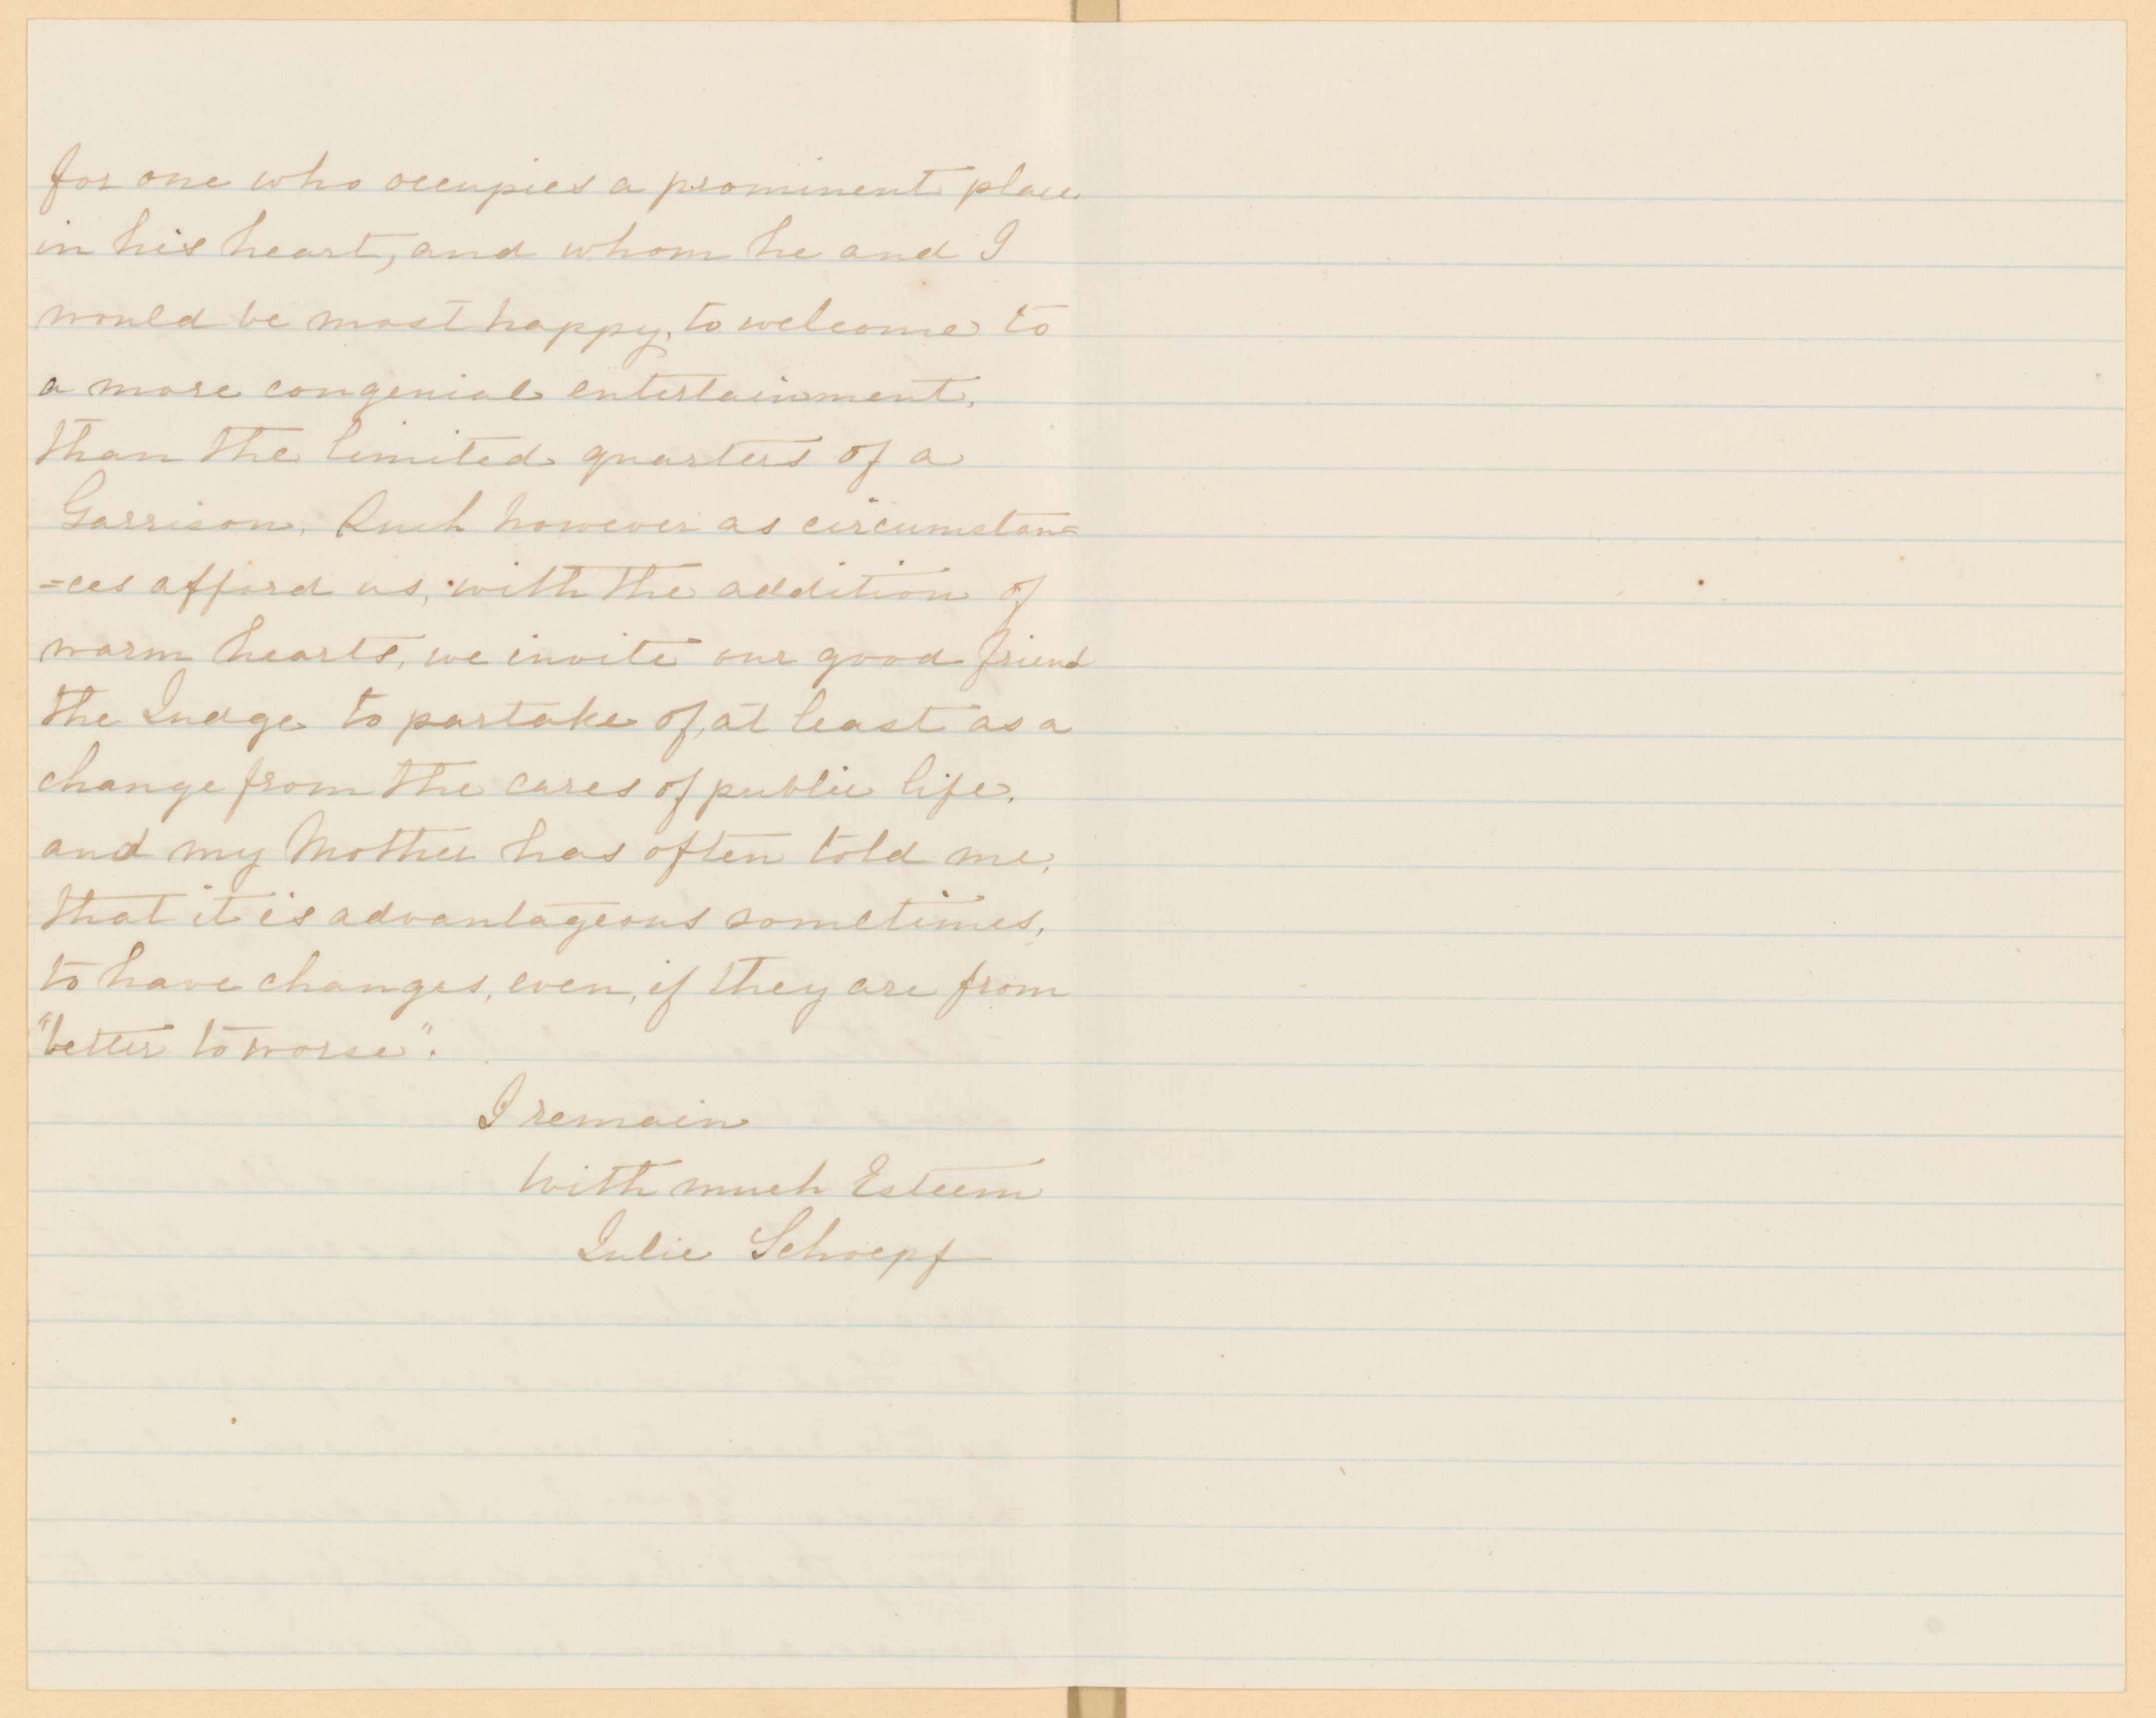 for one who occupies a prominent place
in his heart, and whom he and I
would be most happy, to welcome to
a more congenial entertainment,
than the limited quarters of a
Garrison. Such however as circumstan=
=ces afford us, with the addition of
warm hearts, we invite our good friend
the Judge to partake of, at least as a
change from the cares of public life,
and my Mother has often told me,
that it is advantageous sometimes,
to have changes, even, if they are from
"better to worse".
I remain
With much Esteem
Julie Schoepf